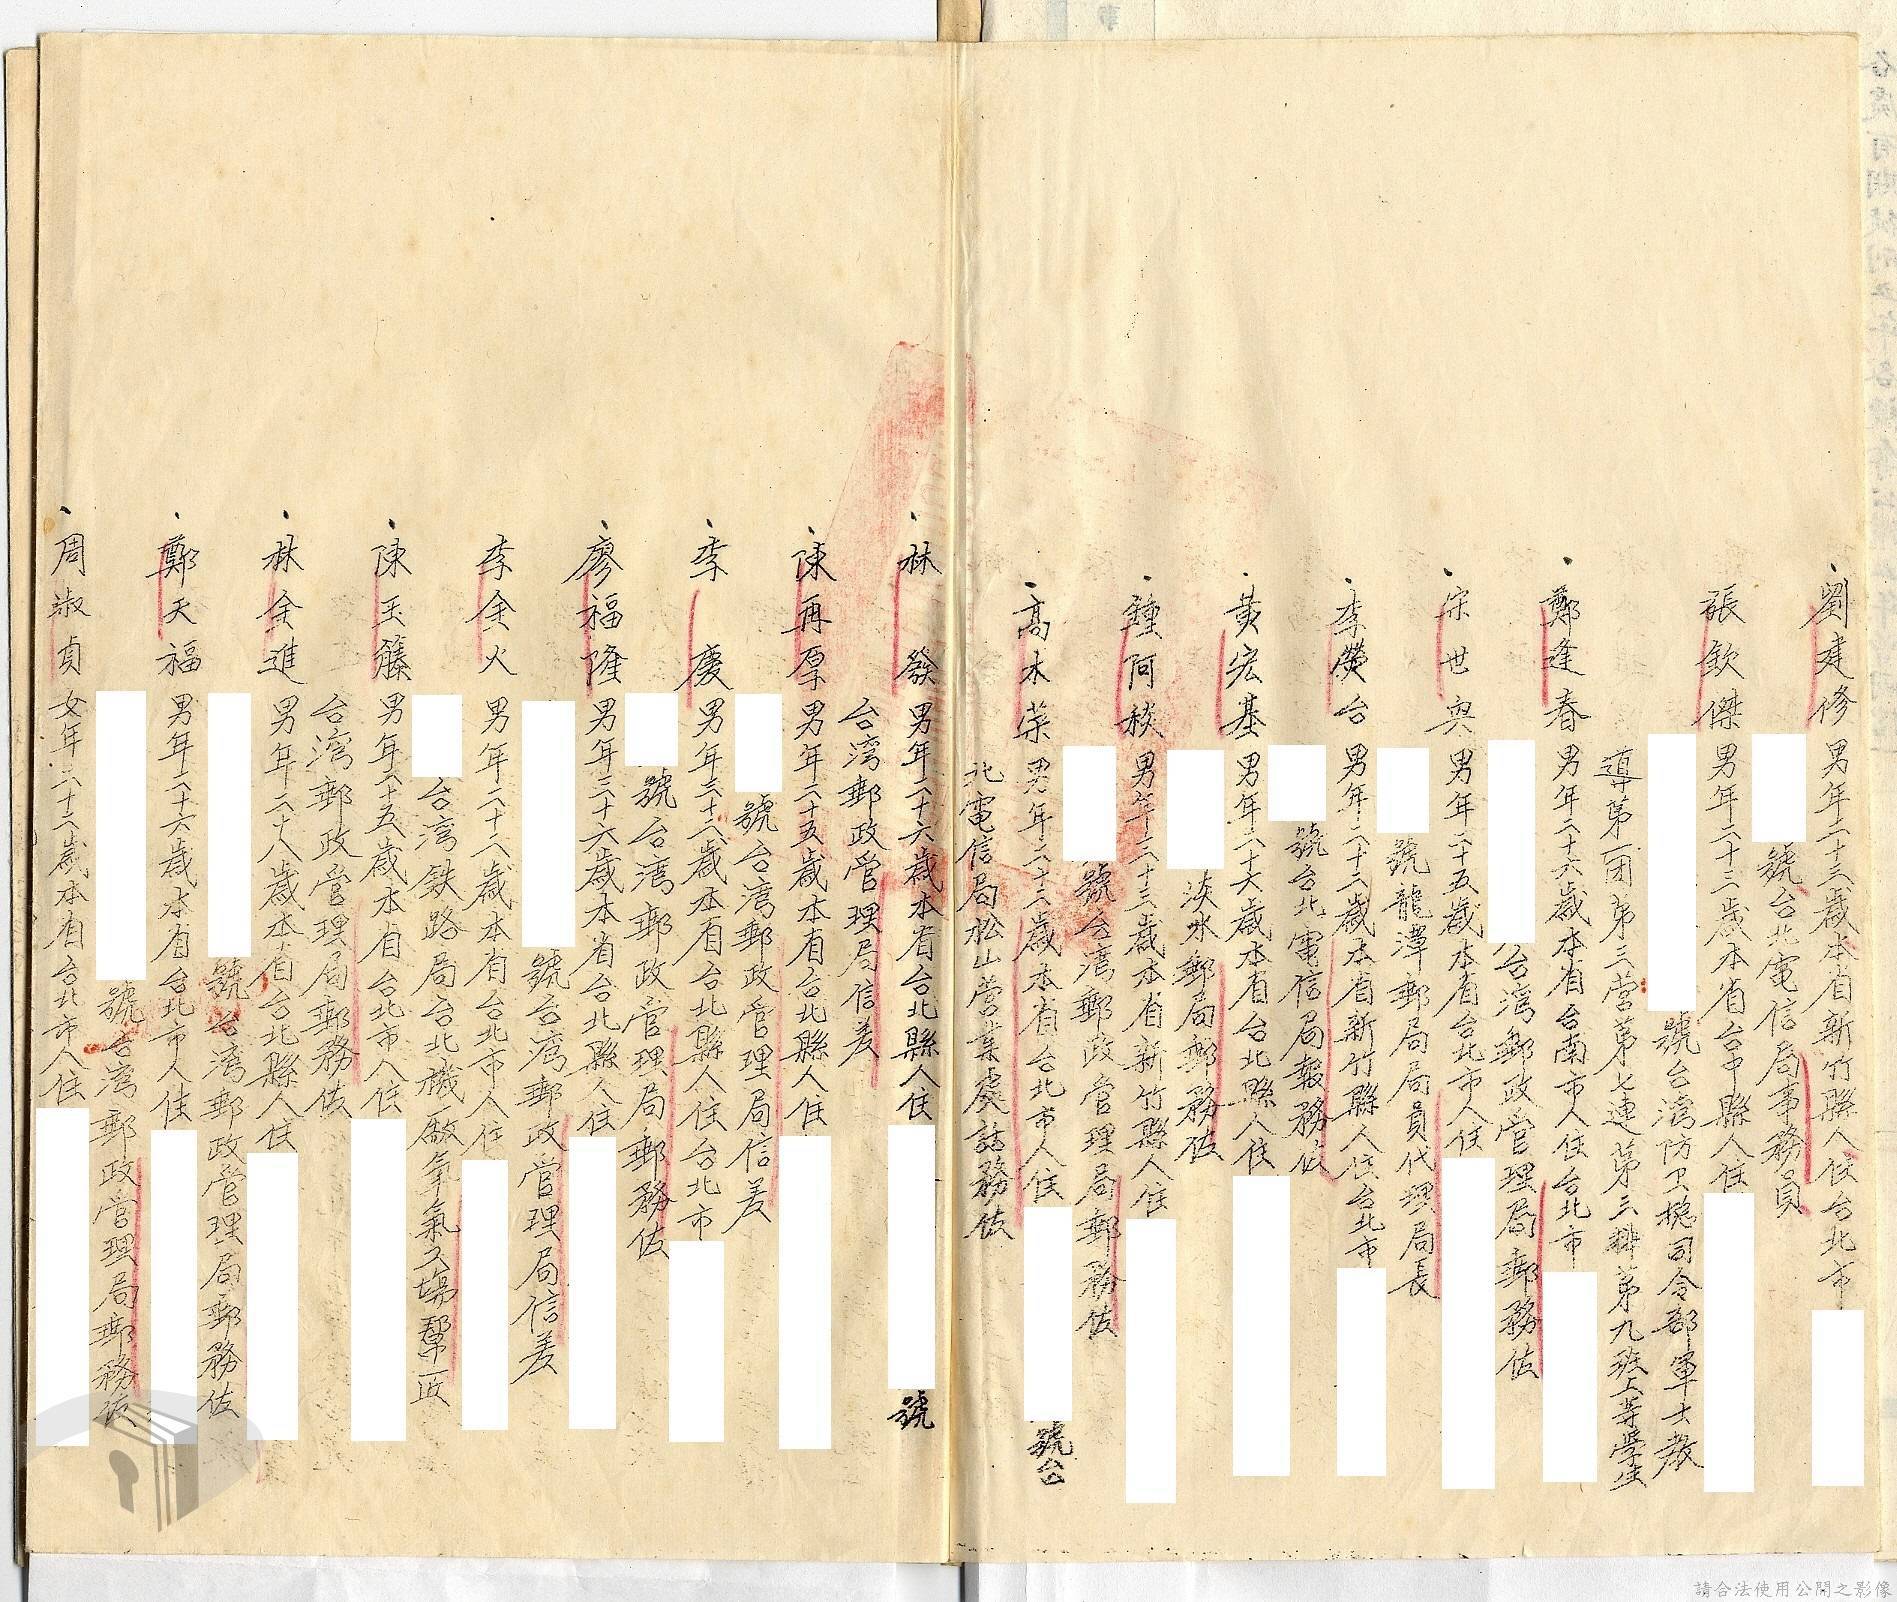 劉建修 男年二十三歲本省新竹縣人住台北市
號台北電信局事務員
張欽傑 男年二十二歲本省台中縣人住
號台灣防卫總司令部軍士教
導第一团第三營第七連第三排第九班上等學生
鄭逢春 男年二十六歲本省台南市人住台北市
台灣郵政管理局郵務佐
宋世興 男年二十五歲本省台北市人住
號龍潭郵局局員代理局長
李熒台 男年二十二歲本省新竹縣人住台北市
號台北電信局報務佐
黃宏基 男年二十六歲本省台北縣人住
淡水郵局郵務佐
鍾阿秋 男年二十三歲本省新竹縣人住
號台灣郵政管理局郵務佐
高木荣 男年二十二歲本省台北市人住
號台
北電信局松山营業處話務佐
林 發 男年二十六歲本省台北縣人住
號
台灣郵政管理局信差
陳再厚 男年二十五歲本省台北縣人住
號台灣郵政管理局信差
李 慶 男年三十二歲本省台北縣人住台北市
號台灣郵政管理局郵務佐
廖福隆 男年三十六歲本省台北縣人住
號台灣郵政管理局信差
李金火 男年二十八歲本省台北市人住
台灣鉄路局台北機廠氧氣工場幫工
陳玉籐 男年二十五歲本省台北市人住
台灣郵政管理局郵務佐
林金進 男年二十八歲本省台北縣人住
號台灣郵政管理局郵務佐
鄭天福 男年二十六歲本省台北市人住
號台灣郵政管理局郵務佐
周淑貞 女年二十六歲本省台北市人住
請合法使用公開之影像